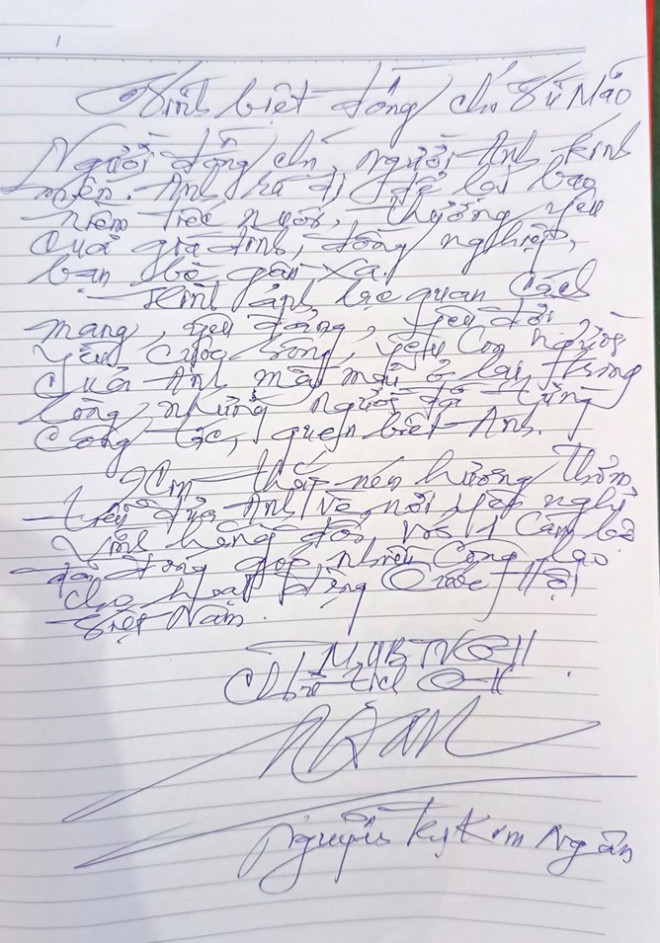 1
Vĩnh biệt đồng chí Vũ Mão
Người đồng chí, người Anh kính
mến. Anh ra đi để lại bao
niềm tiếc nuối, thương yêu
của gia đình, đồng nghiệp,
bạn bè gần xa.
Hình ảnh lạc quan Cách
mạng, yêu Đảng, yêu đời,
yêu cuộc sống, yêu con người
của Anh mãi mãi ở lại trong
lòng những người đã từng
công tác, quen biết Anh.
Xin thắp nén hương thơm
tiễn đưa Anh về nơi yên nghỉ
vĩnh hằng đối với 1 Cán bộ
đã đóng góp nhiều công lao
cho hoạt động Quốc Hội
Việt Nam.
TM, UBTVQH
Chủ tịch QH
Ngân
Nguyễn Thị Kim Ngân